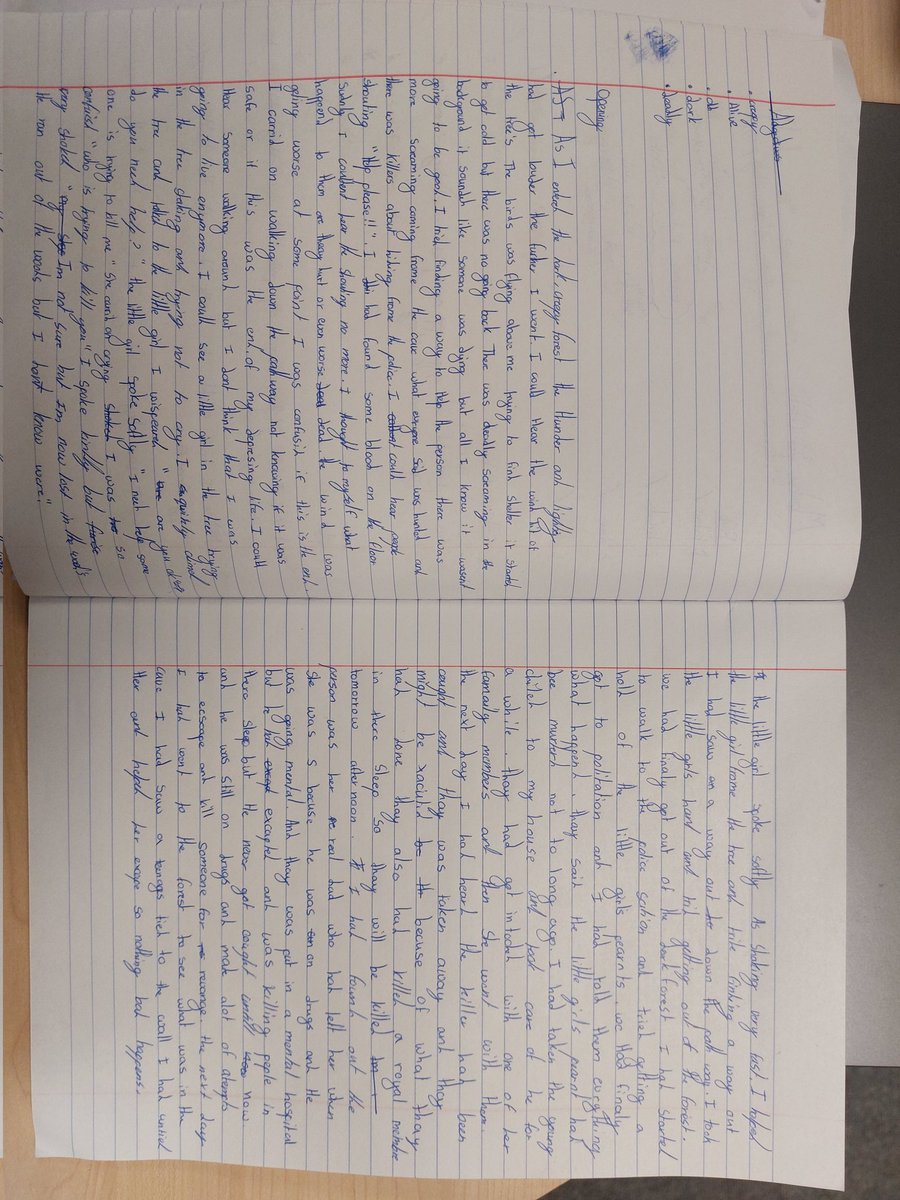 Adjectives
• creepy
• Alive
• old
• dark
• Deadly
Opening:
As I entered the dark, creepy forest the thunder and lightnig
had got louder the further I went. I could hear the wind hit of
the tree's. The birds was flying above me trying to find shelter it started
to get cold but there was no going back. There was deadly screaming in the
background it soundeh like somone was dying but all I know it wasent
going to be good. I tried finding a way to help the person there was
more screaming coming frome the cave what everyone said was hunted and
there was killers about hiding frome the police. I could hear
shouting "Help please!!". I had found some blood on the floor
Sudenly I couldent hear the shouting no more. I thought to myself what
happend to them are they hurt or even worse dead. the wind was
getting worse at some point I was confusid if this is the end.
I carrid on walking down the pathway not knowing if it was
safe or if this was the end of my depresing life. I could
hear someone walking around but I dont think that I was
going to live enymore. I could see a little girl in the tree trying
in the tree shaking and trying not to cry. I quickly climd
the tree and talked to the little girl I wispered " are you ok
do you need help?" the little girl spoke softly "I need help some
one is trying to kill me" She carrid on crying I was so
confusid "who is trying to kill you" I spoke kindly but
very shaked " Im not sure but Im now lost in the wood's
He ran out of the woods but I dont know were."
the little girl spoke softly As shaking very fast. I helped
the little girl frome the tree and tride finking a way out
I had saw an a way out down the path way. I took
the little girls hand and trid getting out of the forest.
we had finaly got out of the dark forest I had started
to walk to the police sachion and tried getting a
hold of the little girls pearnts. we had finaly
got to policstion and I had told them evrything
what happend thay said the little girls pearnt had
bee murderd not to long eago. I had taken the young
child to my house and took care of he for
a while. thay had get intoched with one of her
famaily members and then she went with them.
the next day I had heard the killer had been
caught and thay was taken away and thay
might be xacuted becuse of what thay
had done thay also had killed a royal membre
in there sleep so thay will be killed
tomorrow afternoon. I had found out the
person was her real dad who had left her when
she was 5 because he was on drugs and He
was going mental And thay was put in a mental hospital
but he had excaped and was killing pople in
there sleep but He never got caught until now
and he was still on drugs and made alot of atempts
to ecscape and kill someone for revange. the next day
I had went to the forest to see what was in the
cave I had saw a teenages tied to the wall I had untied
ther and helped her exape so nothing bad happens.